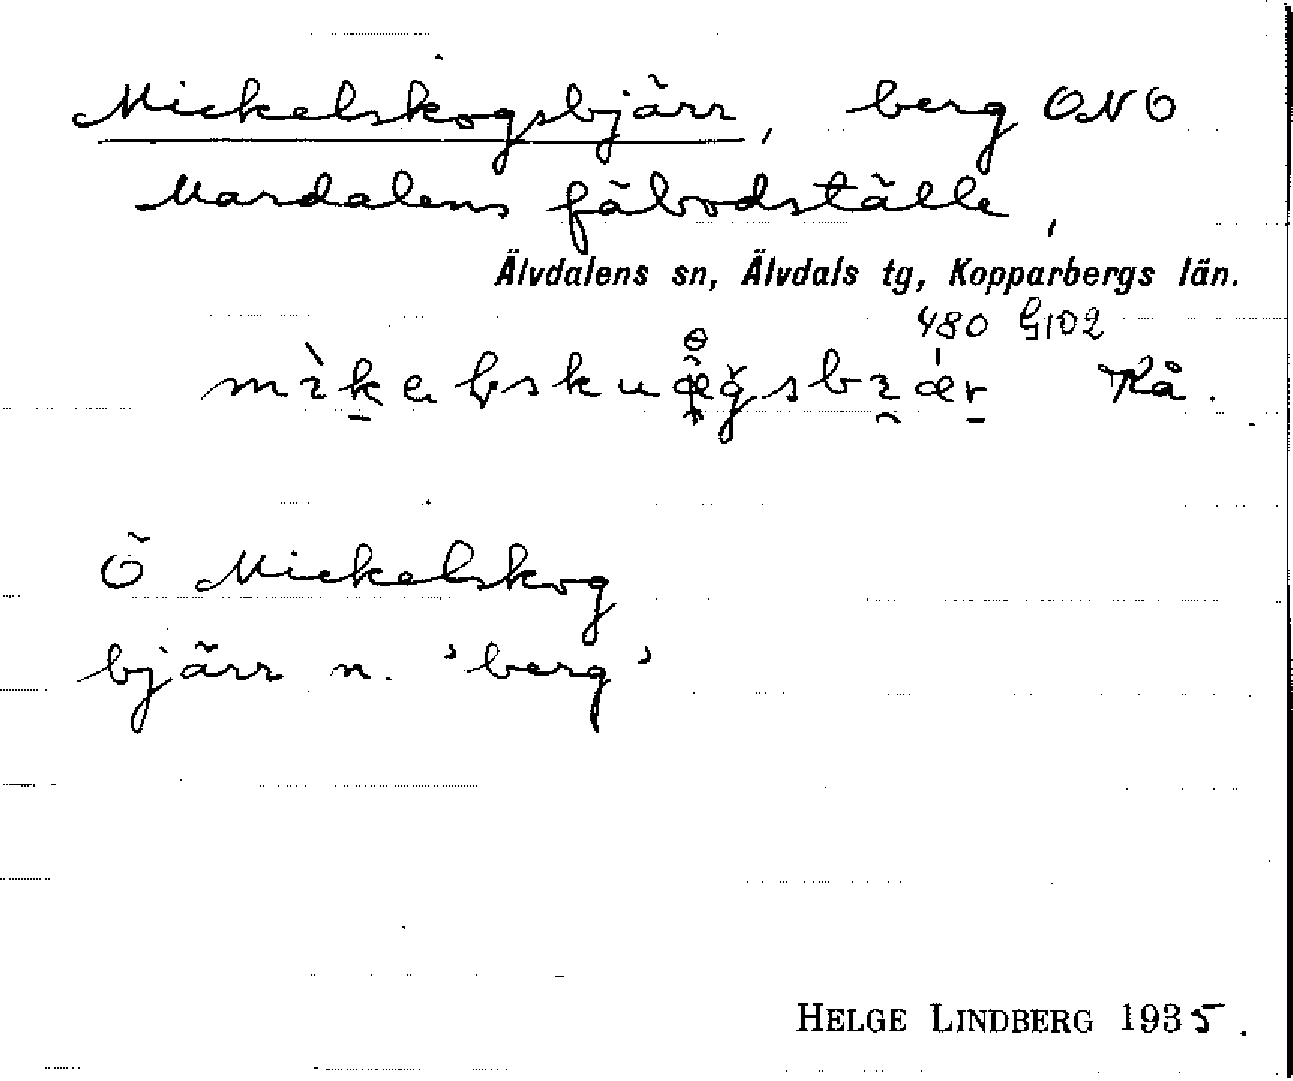 Mickelskogsbjärr, berg ONO
Mardalens fäbodställe,
Älvdalens sn, Älvdals tg, Kopparbergs län.
480 G102
Kå.
Ö Mickelskog
bjärr n. 'berg'
HELGE LINDBERG 1935.